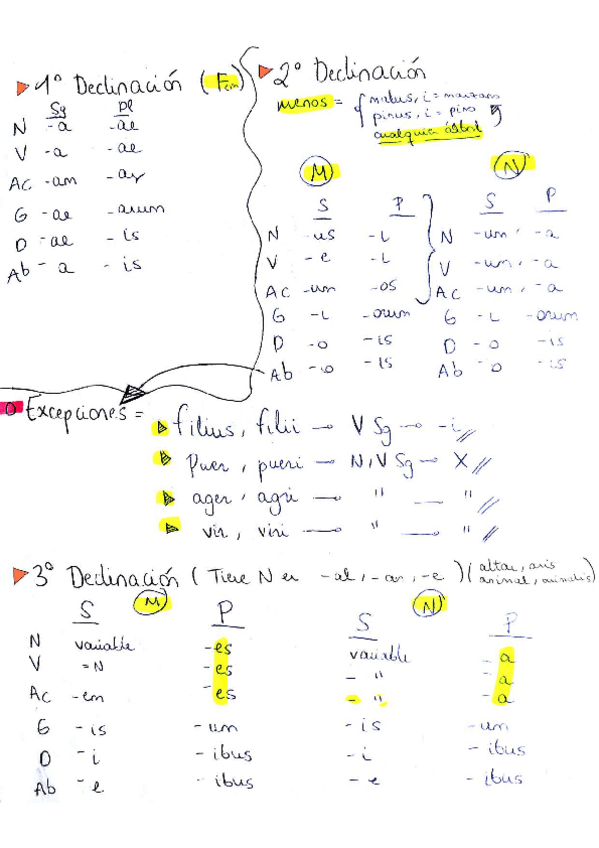 1º Declinación (Fem)
Sg Pl
N -a -ae
V -a -ae
Ac -am -as
G -ae -arum
D -ae -is
Ab -a -is
2º Declinación
menos = { malus, i = manzano
pinus, i = pino
cualquier árbol
M
S P
N -us -i
V -e -i
Ac -um -os
G -i -orum
D -o -is
Ab -o -is
N
S P
N -um, -a
V -um, -a
Ac -um, -a
G -i -orum
D -o -is
Ab -o -is
Excepciones =
filius, filii → V Sg → -i //
puer, pueri → N, V Sg → X //
ager, agri → " — " //
vir, viri → " — " //
3º Declinación (Tiene N en -al, -ar, -e) (altar, aris
animal, animalis)
M
S P
N variable -es
V = N -es
Ac -em -es
G -is -um
D -i -ibus
Ab -e -ibus
N
S P
variable - a
- " - a
- " - a
- is - um
- i - ibus
- e - ibus